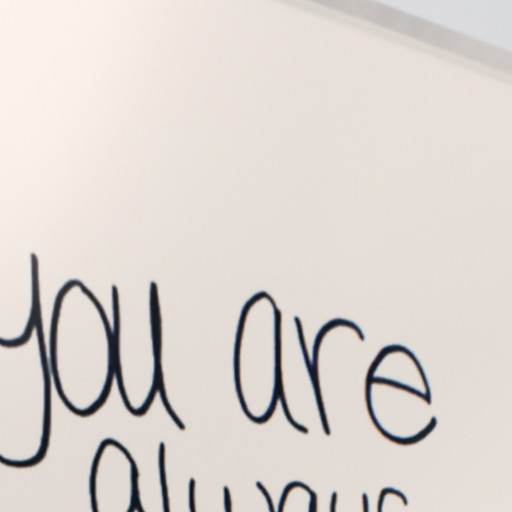 you are
always